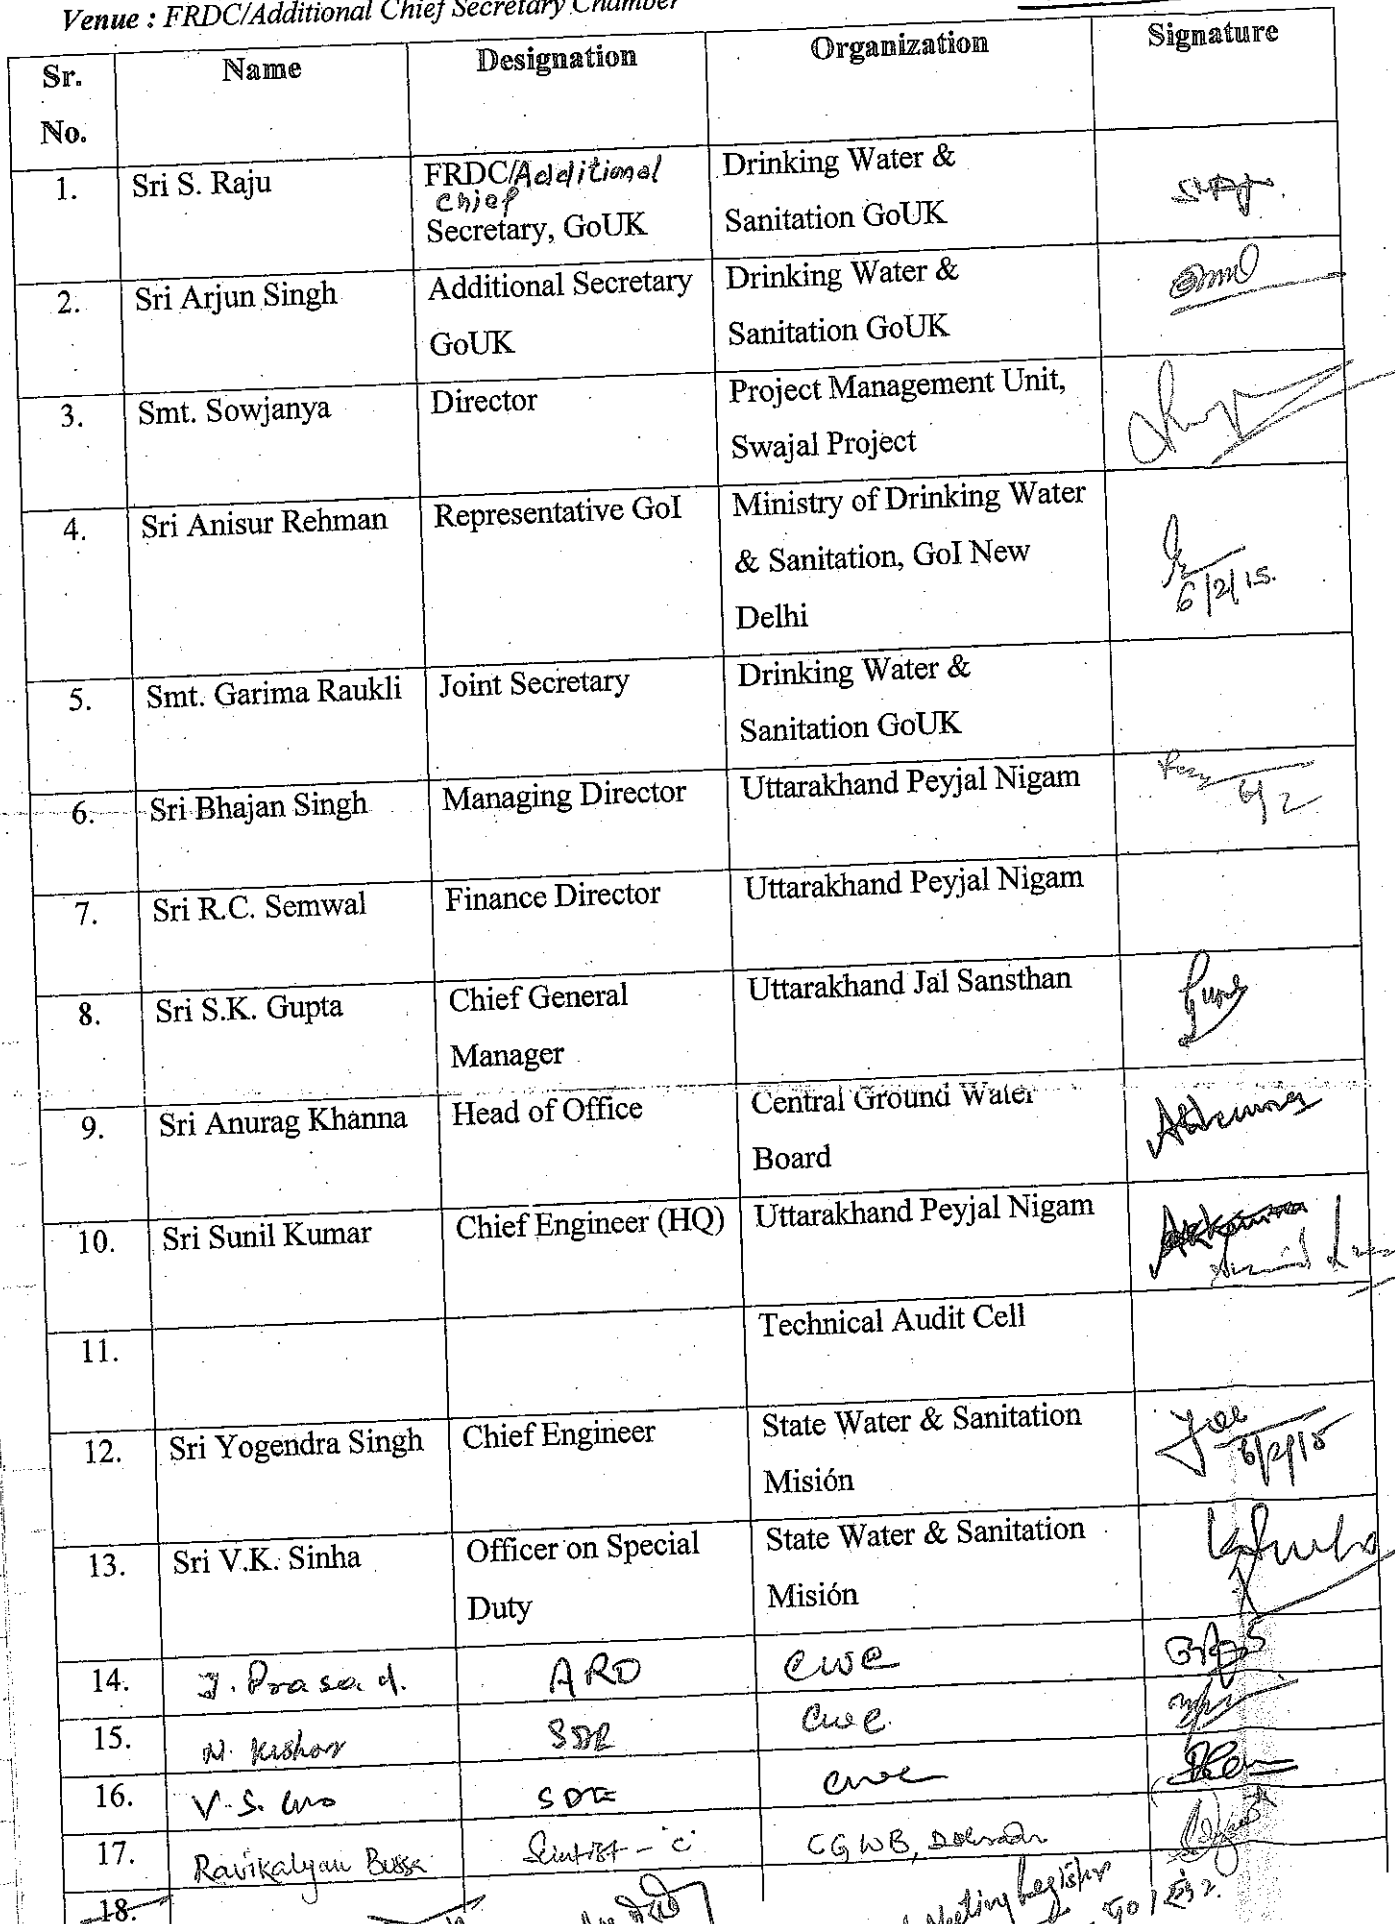 Venue : FRDC/Additional Chief Secretary Chamber
Sr. No. Name Designation Organization Signature
1. Sri S. Raju FRDC/Additional Chief Secretary, GoUK Drinking Water & Sanitation GoUK
2. Sri Arjun Singh Additional Secretary GoUK Drinking Water & Sanitation GoUK
3. Smt. Sowjanya Director Project Management Unit, Swajal Project
4. Sri Anisur Rehman Representative GoI Ministry of Drinking Water & Sanitation, GoI New Delhi 6/2/15.
5. Smt. Garima Raukli Joint Secretary Drinking Water & Sanitation GoUK
6. Sri Bhajan Singh Managing Director Uttarakhand Peyjal Nigam 6/2
7. Sri R.C. Semwal Finance Director Uttarakhand Peyjal Nigam
8. Sri S.K. Gupta Chief General Manager Uttarakhand Jal Sansthan
9. Sri Anurag Khanna Head of Office Central Ground Water Board
10. Sri Sunil Kumar Chief Engineer (HQ) Uttarakhand Peyjal Nigam
11. Technical Audit Cell
12. Sri Yogendra Singh Chief Engineer State Water & Sanitation Misión 6/2/15
13. Sri V.K. Sinha Officer on Special Duty State Water & Sanitation Misión
14. J. Prasad. ARO CWC
15. N. Kishor SDE CWC.
16. V.S. SDE CWC
17. Ravikalyan Bussa Scientist - 'C' CGWB,
18. Meeting Register